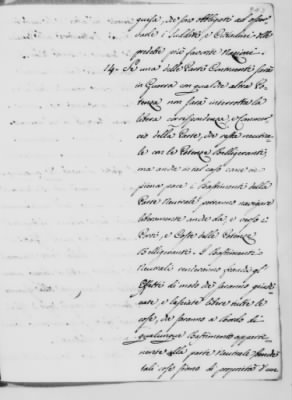 guisa, che sono obbligati ad osser-
vare i Sudditi, e Cittadini delle
predette più favorite Nazioni.
14.- Se una delle Parti Contraenti sarà
in Guerra con qualche altra Po-
tenza non sarà interrotta la
libera corrispondenza, e Commer-
cio della Parte, che resta neutra-
le con la Potenza Belligerante;
ma anche in tal caso come in
piena pace i Bastimenti della
Parte Neutrale potranno navigare
liberamente anche da, e verso i
Porti, e Coste delle Potenze
Belligeranti. I Bastimenti
Neutrali renderanno franchi gl'
Effetti di modo che saranno giudi-
cate, e lasciate libere tutte le
cose, che saranno a bordo di
qualunque Bastimento apparte-
nente alla parte Neutrale
tali cose siano di proprietà d'un